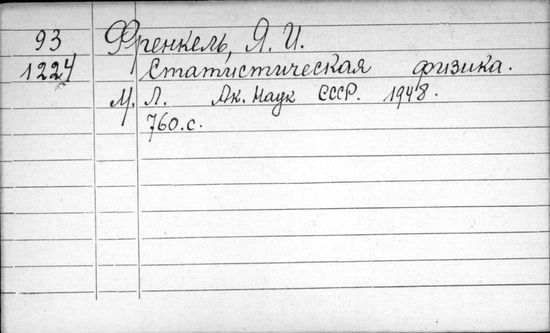 93 Френкель, Я. И.
1224 Статистическая физика.
М. Л. Ак. Наук СССР. 1948.
760.с.